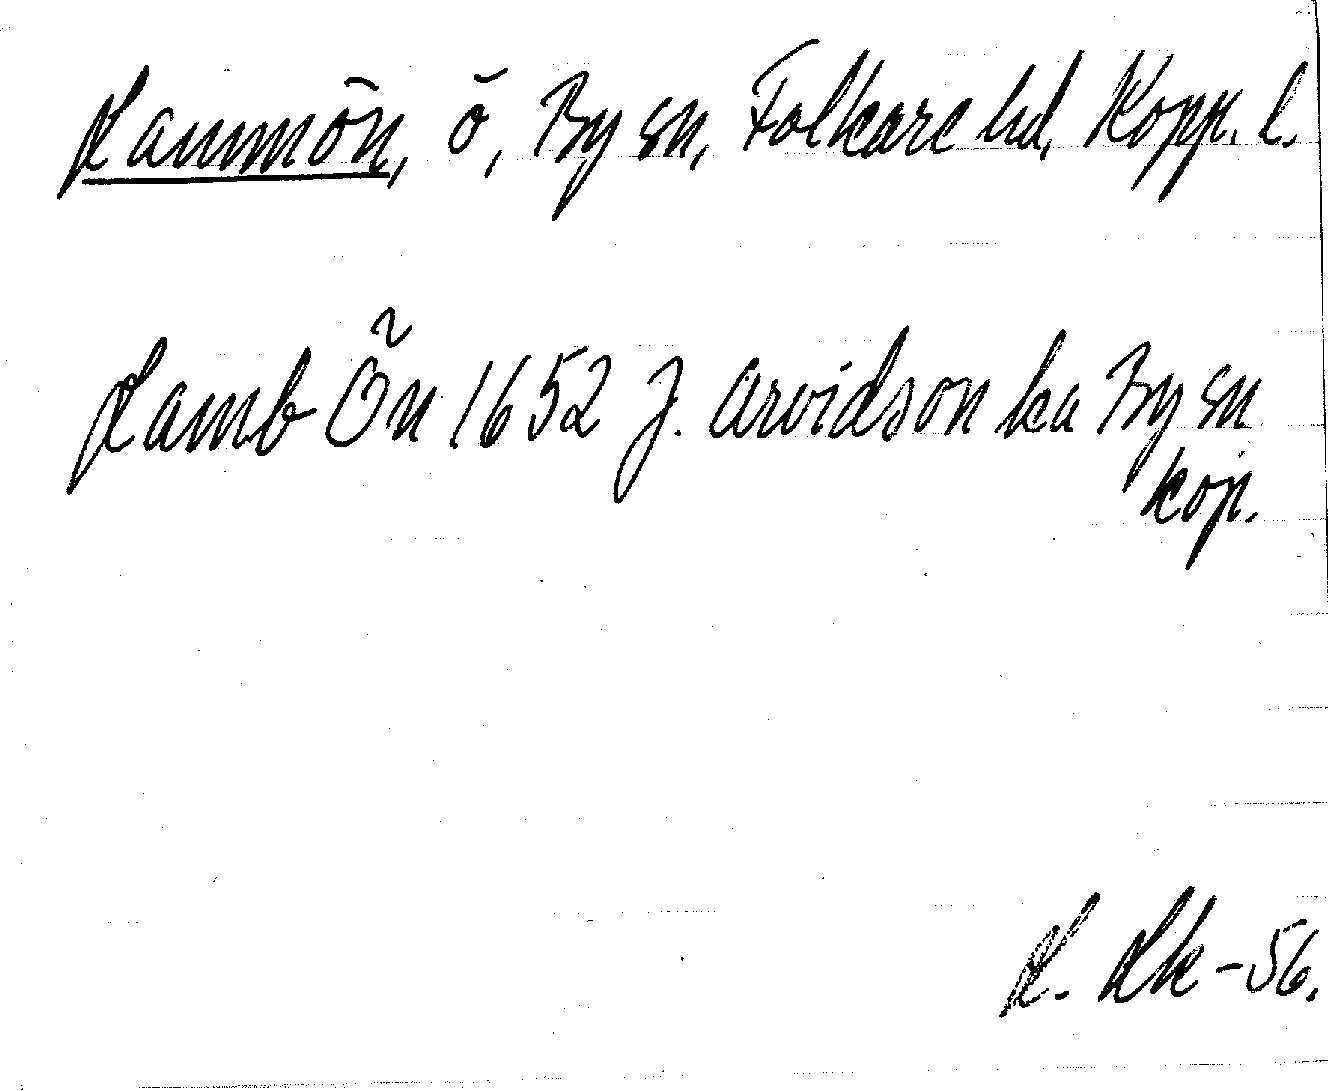 Lammön, ö, By sn, Folkare hd, Kopp. l.
Lamb Ön 1652 J. Arvidson ka By sn
kop.
-56.